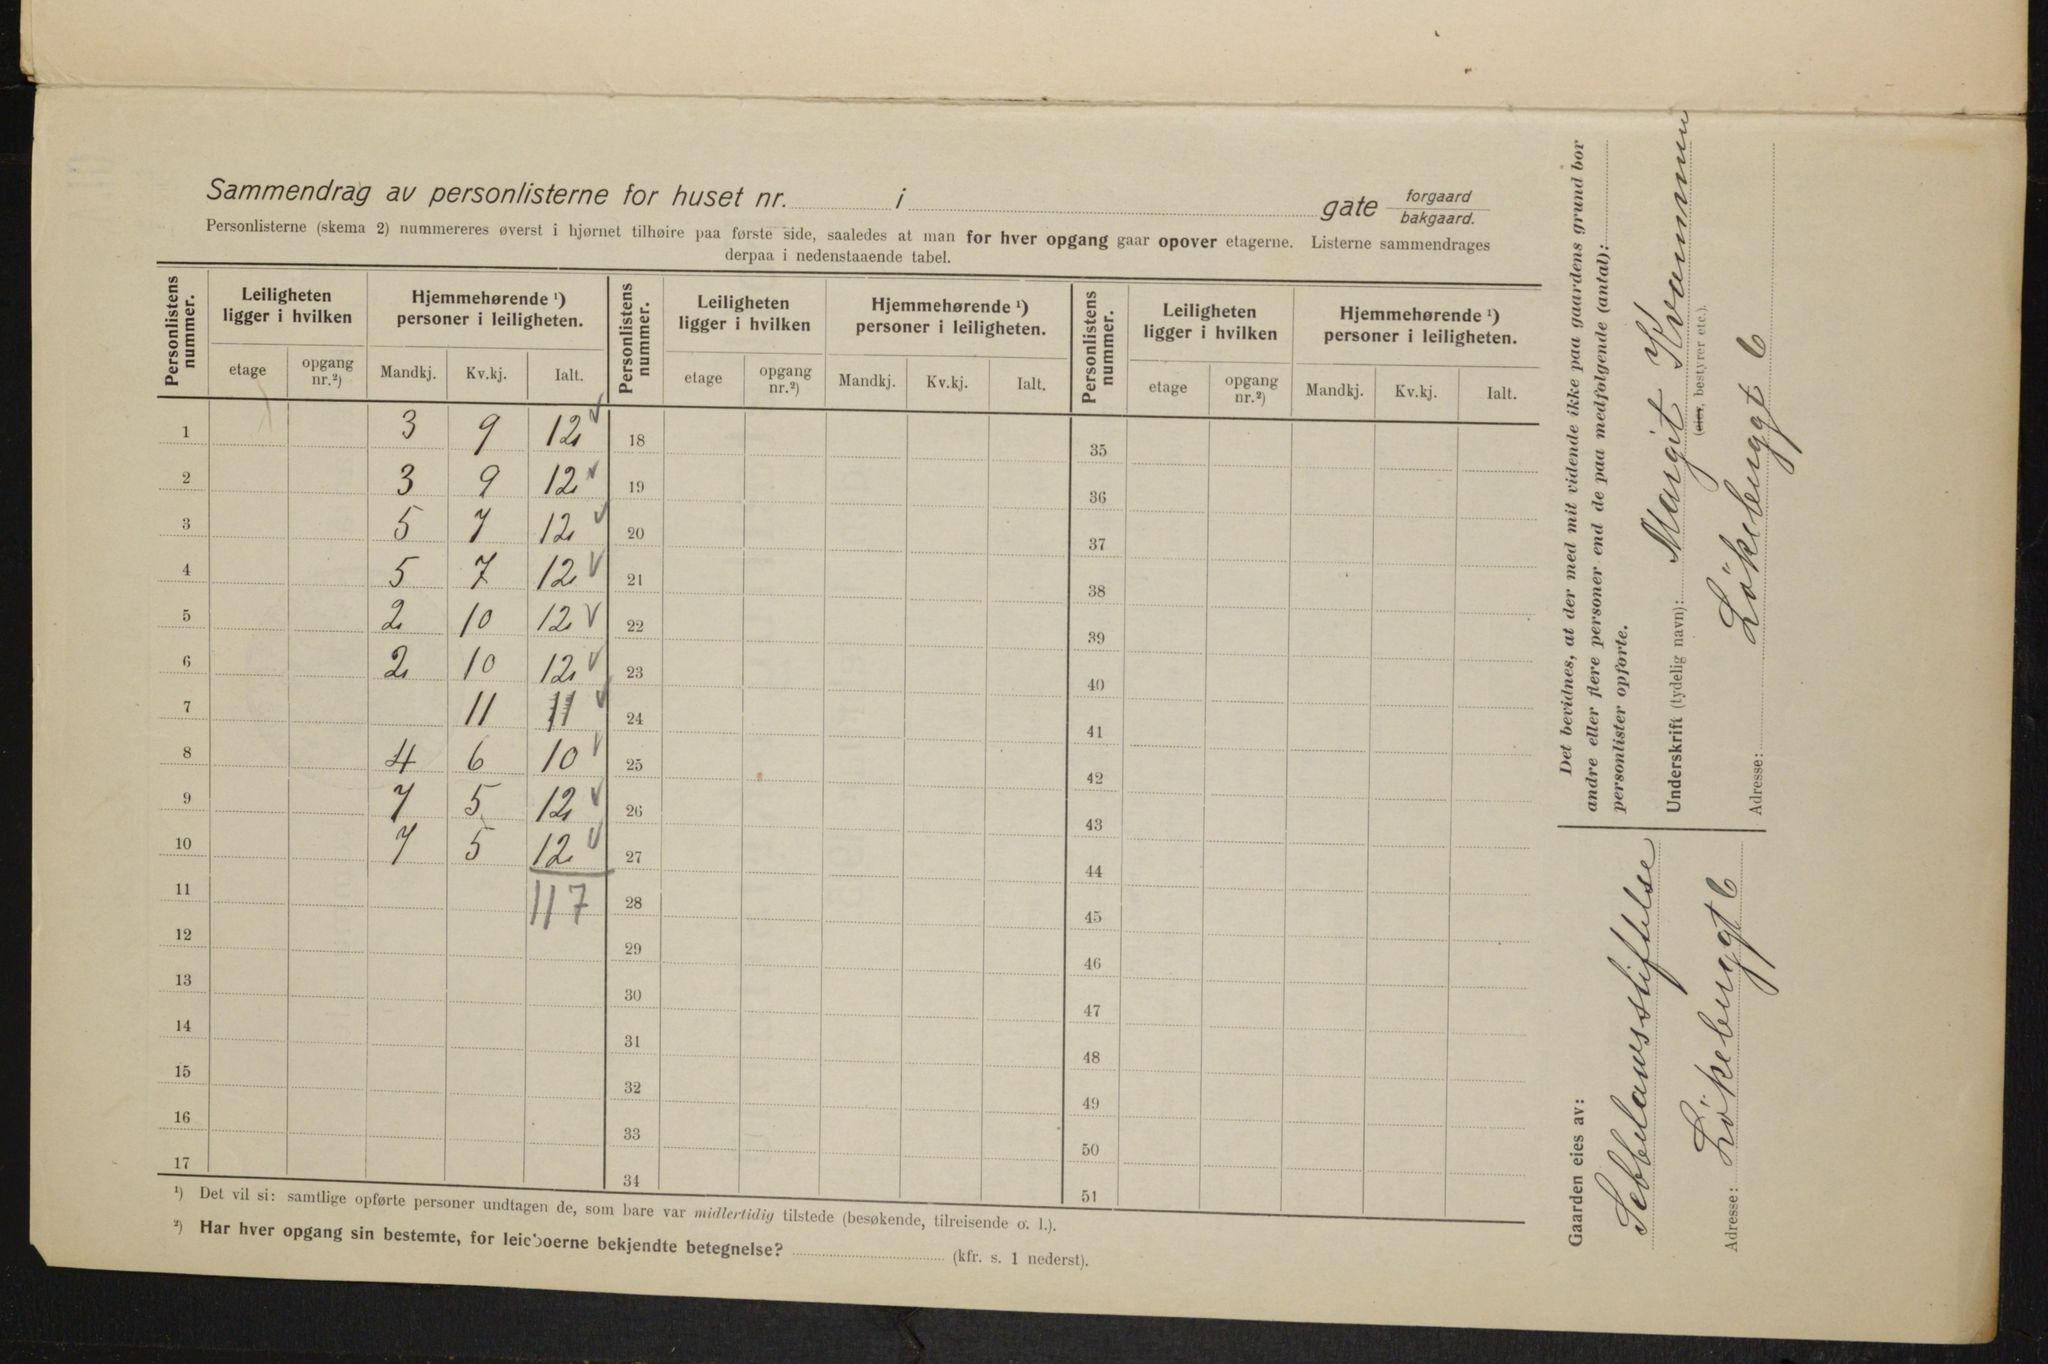 Sammendrag av personlisterne for huset nr. i gate forgaard bakgaard.
Personlisterne (skema 2) nummereres øverst i hjørnet tilhøire paa første side, saaledes at man for hver opgang gaar opover etagerne. Listerne sammendrages
derpaa i nedenstaaende tabel.
Personlistens nummer. Leiligheten ligger i hvilken Hjemmehørende ¹) personer i leiligheten. Personlistens nummer. Leiligheten ligger i hvilken Hjemmehørende ¹) personer i leiligheten. Personlistens nummer. Leiligheten ligger i hvilken Hjemmehørende ¹) personer i leiligheten.
etage opgang nr.²) Mandkj. Kv.kj. Ialt. etage opgang nr.²) Mandkj. Kv.kj. Ialt. etage opgang nr.²) Mandkj. Kv.kj. Ialt.
1 3 9 12 ✓ 18 35
2 3 9 12 ✓ 19 36
3 5 7 12 ✓ 20 37
4 5 7 12 ✓ 21 38
5 2 10 12 ✓ 22 39
6 2 10 12 ✓ 23 40
7 11 11 ✓ 24 41
8 4 6 10 ✓ 25 42
9 7 5 12 ✓ 26 43
10 7 5 12 ✓ 27 44
11 117 28 45
12 29 46
13 30 47
14 31 48
15 32 49
16 33 50
17 34 51
¹) Det vil si: samtlige opførte personer undtagen de, som bare var midlertidig tilstede (besøkende, tilreisende o. l.).
²) Har hver opgang sin bestemte, for leieboerne bekjendte betegnelse? (kfr. s. 1 nederst).
Det bevidnes, at der med mit vidende ikke paa gaardens grund bor
andre eller flere personer end de paa medfølgende (antal):
personlister opførte.
Underskrift (tydelig navn): Margit Kvammen
(eier, bestyrer etc.).
Adresse: Løkeberggt 6
Gaarden eies av:
Sebbelowsstiftelse
Adresse: Løkeberggt 6